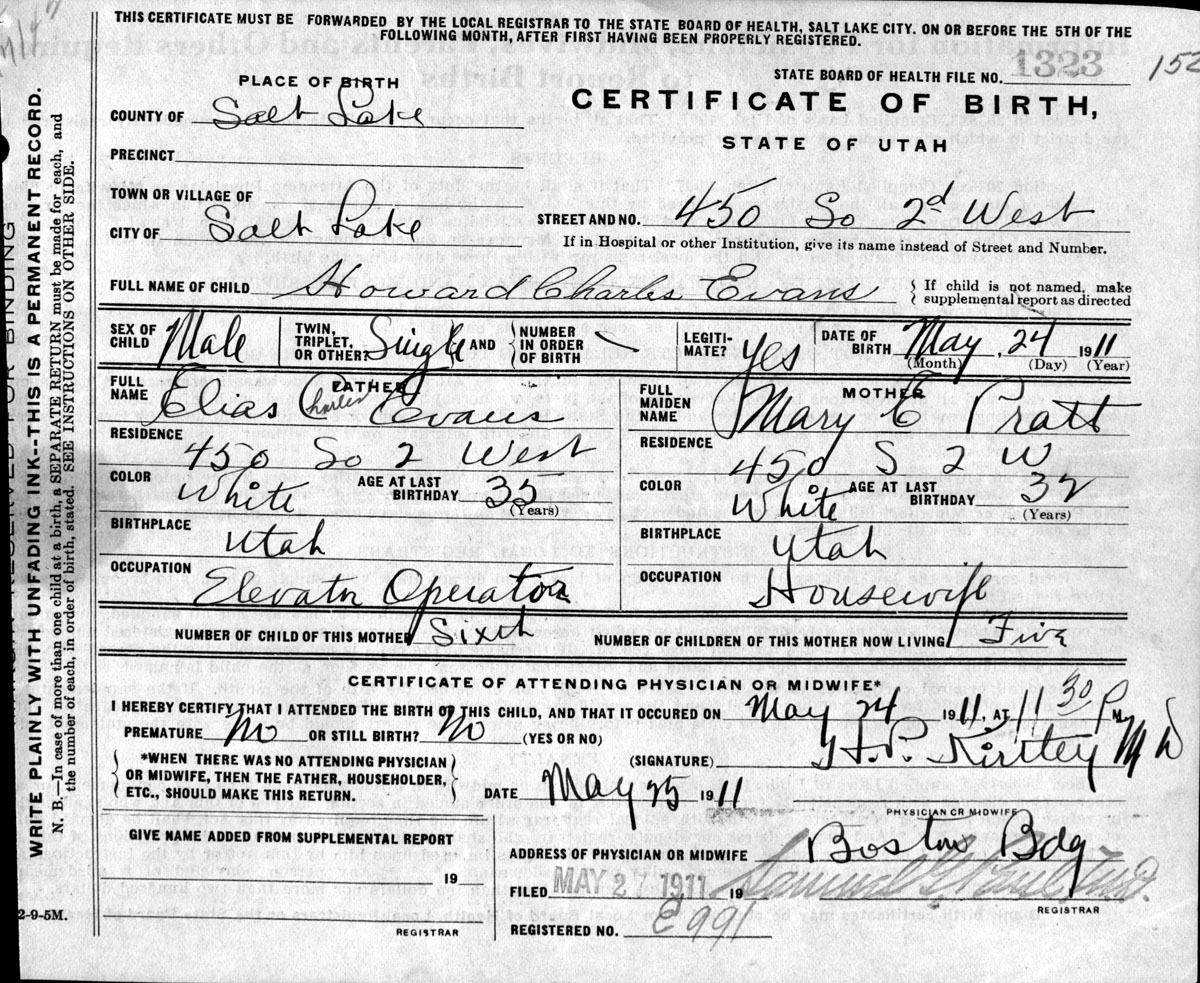 THIS CERTIFICATE MUST BE FORWARDED BY THE LOCAL REGISTRAR TO THE STATE BOARD OF HEALTH, SALT LAKE CITY. ON OR BEFORE THE 5TH OF THE
FOLLOWING MONTH, AFTER FIRST HAVING BEEN PROPERLY REGISTERED.
STATE BOARD OF HEALTH FILE NO. 1323 152
PLACE OF BIRTH
CERTIFICATE OF BIRTH,
STATE OF UTAH
COUNTY OF Salt Lake
PRECINCT
TOWN OR VILLAGE OF
CITY OF Salt Lake
STREET AND NO. 450 So 2d West
If in Hospital or other Institution, give its name instead of Street and Number.
FULL NAME OF CHILD Howard Charles Evans
If child is not named, make
supplemental report as directed
SEX OF CHILD Male
TWIN, TRIPLET, OR OTHER? Single AND
NUMBER IN ORDER OF BIRTH
LEGITI-MATE? Yes
DATE OF BIRTH May 24 1911
(Month) (Day) (Year)
FATHER
FULL NAME Elias Charles Evans
RESIDENCE 450 So 2 West
COLOR White AGE AT LAST BIRTHDAY 35
(Years)
BIRTHPLACE Utah
OCCUPATION Elevator Operator
MOTHER
FULL MAIDEN NAME Mary E Pratt
RESIDENCE 450 S 2 W
COLOR White AGE AT LAST BIRTHDAY 32
(Years)
BIRTHPLACE Utah
OCCUPATION Housewife
NUMBER OF CHILD OF THIS MOTHER Sixth NUMBER OF CHILDREN OF THIS MOTHER NOW LIVING Five
CERTIFICATE OF ATTENDING PHYSICIAN OR MIDWIFE*
I HEREBY CERTIFY THAT I ATTENDED THE BIRTH OF THIS CHILD, AND THAT IT OCCURED ON May 24 1911, AT 11 30 P M.
PREMATURE No OR STILL BIRTH? No (YES OR NO)
(SIGNATURE) H.P. Kirtley MD
*WHEN THERE WAS NO ATTENDING PHYSICIAN
OR MIDWIFE, THEN THE FATHER, HOUSEHOLDER,
ETC., SHOULD MAKE THIS RETURN.
DATE May 25 1911
PHYSICIAN OR MIDWIFE
GIVE NAME ADDED FROM SUPPLEMENTAL REPORT
19
REGISTRAR
ADDRESS OF PHYSICIAN OR MIDWIFE Boston Bdg
FILED MAY 2 1911 19
REGISTRAR
REGISTERED NO. E991
2-9-5M.
WRITE PLAINLY WITH UNFADING INK--THIS IS A PERMANENT RECORD.
N. B.—In case of more than one child at a birth, a SEPARATE RETURN must be made for each, and
the number of each, in order of birth, stated. SEE INSTRUCTIONS ON OTHER SIDE.
RESERVED FOR BINDING